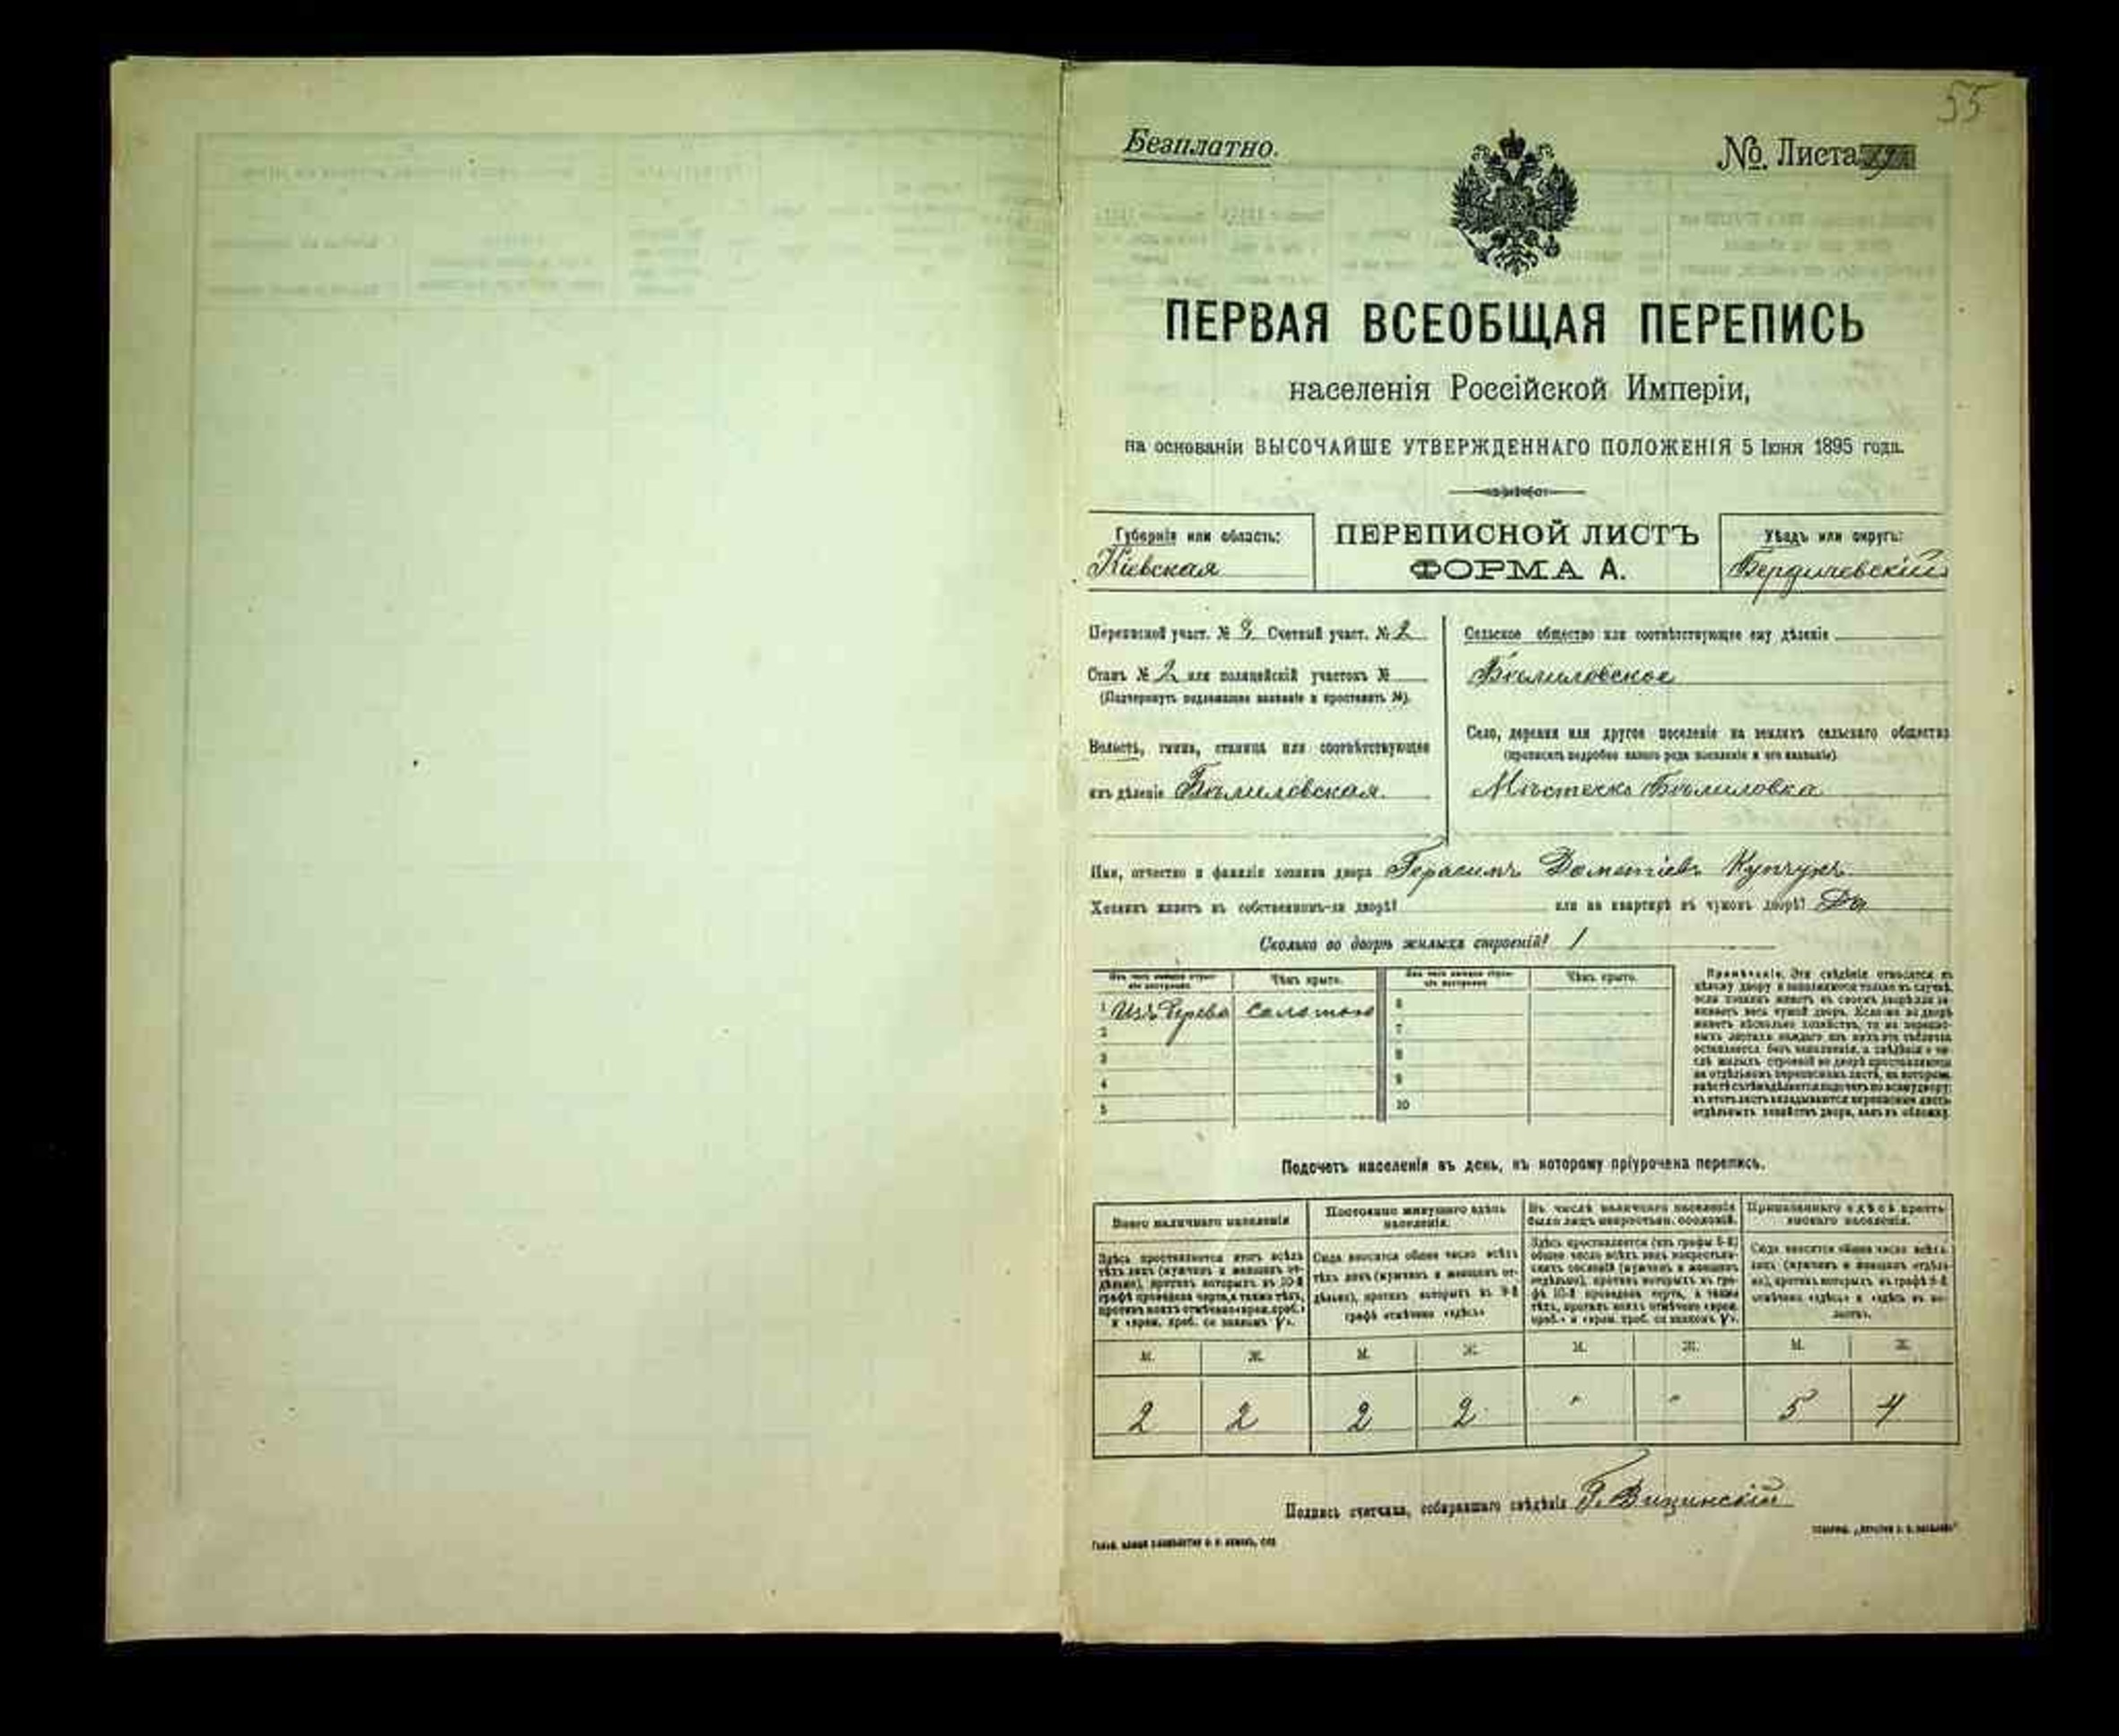 55
Безплатно.
№. Листа
ПЕРВАЯ ВСЕОБЩАЯ ПЕРЕПИСЬ
населенія Россійской Имперіи,
на основаніи ВЫСОЧАЙШЕ УТВЕРЖДЕННАГО ПОЛОЖЕНІЯ 5 Іюня 1895 года.
Губернія или область:
Кіевская
ПЕРЕПИСНОЙ ЛИСТЪ
ФОРМА А.
Уѣздъ или округъ:
Бердичевскій
Переписной участ. № 3 Счетный участ. № 2
Станъ № 2 или полицейскій участокъ №
(Подчеркнуть подлежащее названіе и проставить №).
Волость, гмина, станица или соотвѣтствующее
имъ дѣленіе Бѣлиловская.
Сельское общество или соотвѣтствующее ему дѣленіе
Бѣлиловское
Село, деревня или другое поселеніе на земляхъ сельскаго общества
(прописать подробно какого рода поселеніе и его названіе)
Мѣстечко Бѣлиловка
Имя, отчество и фамилія хозяина двора Герасимъ Дометіевъ
Хозяинъ живетъ въ собственномъ-ли дворѣ? или на квартирѣ въ чужомъ дворѣ? Да
Сколько во дворѣ жилыхъ строеній? 1
Чѣмъ крыто.
Чѣмъ крыто.
1 Изъ дерева соломою 6
2 7
3 8
4 9
5 10
Примѣчаніе. Эти свѣдѣнія относятся къ
цѣлому двору и заполняются только въ случаѣ,
если хозяинъ живетъ въ своемъ дворѣ или за-
нимаетъ весь чужой дворъ. Если же во дворѣ
живетъ нѣсколько хозяйствъ, то на перепис-
ныхъ листахъ каждаго изъ нихъ эта табличка
оставляется безъ заполненія, а свѣдѣнія о чи-
слѣ жилыхъ строеній во дворѣ проставляются
на отдѣльномъ переписномъ листѣ, на которомъ
вмѣстѣ съ тѣмъ дѣлается подсчетъ по всему двору;
въ этотъ листъ вкладываются переписные листы
отдѣльныхъ хозяйствъ двора, какъ въ обложку.
Подсчетъ населенія въ день, къ которому пріурочена перепись.
Всего наличнаго населенія
Постоянно живущаго здѣсь
населенія.
Въ числѣ наличнаго населенія
было лицъ некрестьян. сословій.
Приписаннаго здѣсь кресть-
янскаго населенія.
Здѣсь проставляется итогъ всѣхъ
тѣхъ лицъ (мужчинъ и женщинъ от-
дѣльно), противъ которыхъ въ 10-й
графѣ проведена черта, а также тѣхъ,
противъ коихъ отмѣчено «врем. преб.»
и «врем. преб. со знакомъ V».
Сюда вносится общее число всѣхъ
тѣхъ лицъ (мужчинъ и женщинъ от-
дѣльно), противъ которыхъ въ 9-й
графѣ отмѣчено «здѣсь»
Здѣсь проставляется (изъ графы 6-й)
общее число всѣхъ лицъ некрестьян-
скихъ сословій (мужчинъ и женщинъ
отдѣльно), противъ которыхъ въ гра-
фѣ 10-й проведена черта, а также
тѣхъ, противъ коихъ отмѣчено «врем.
преб.» и «врем. преб. со знакомъ V».
Сюда вносится общее число всѣхъ
лицъ (мужчинъ и женщинъ отдѣль-
но), противъ которыхъ въ графѣ 8-й
отмѣчено «здѣсь» и «здѣсь въ во-
лости».
М. Ж. М. Ж. М. Ж. М. Ж.
2 2 2 2 " " 5 4
Подпись счетчика, собиравшаго свѣдѣнія Г. Вицинскій